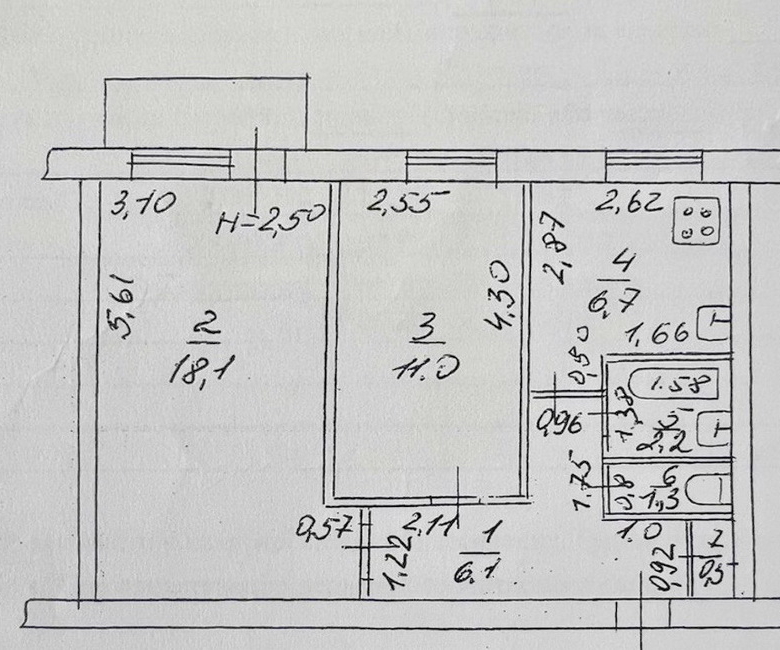 3,10
H=2,50
2,55
2,62
5,61
2
18,1
3
11.0
4,30
2,87
4
6,7
1,66
0,50
0,96
1,38
1.58
5
2,2
1.75
0,8
6
1,3
0,57
2,11
1,22
1
6.1
1,0
0,92
7
0,5